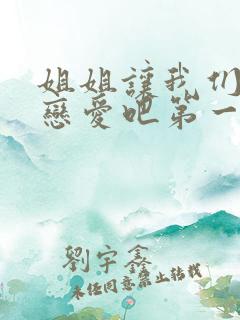 姐姐讓我们
戀愛吧第一
劉宇鑫
未经同意禁止转载